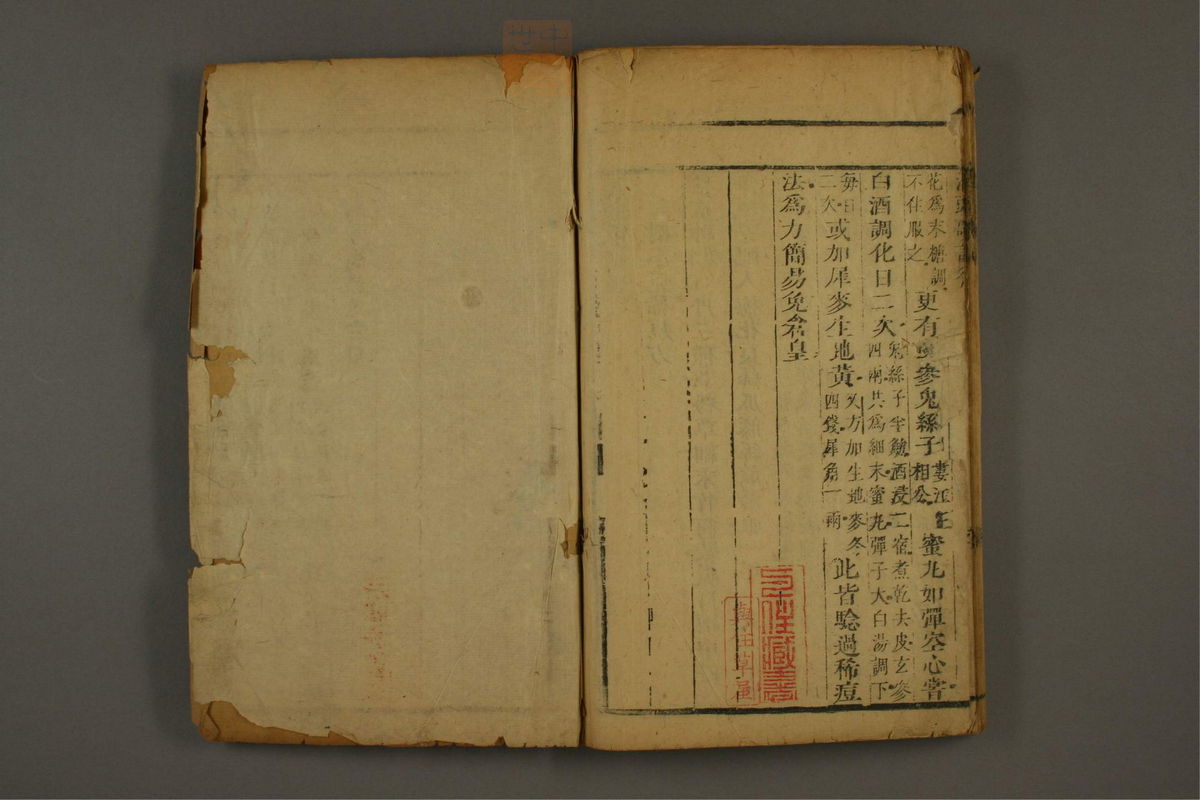 花爲末糖調
不住服之
更有玄參兔絲子
婁江王
相公
蜜丸如彈空心嘗
白酒調化日二次
兔絲子半觔酒浸二宿煮乾去皮玄參
四兩共爲細末蜜丸彈子大白湯調下
每日
二次
或加犀麥生地黃
又方加生地麥冬
四錢犀角一兩
此皆驗過稀痘
法爲力簡易免倉皇